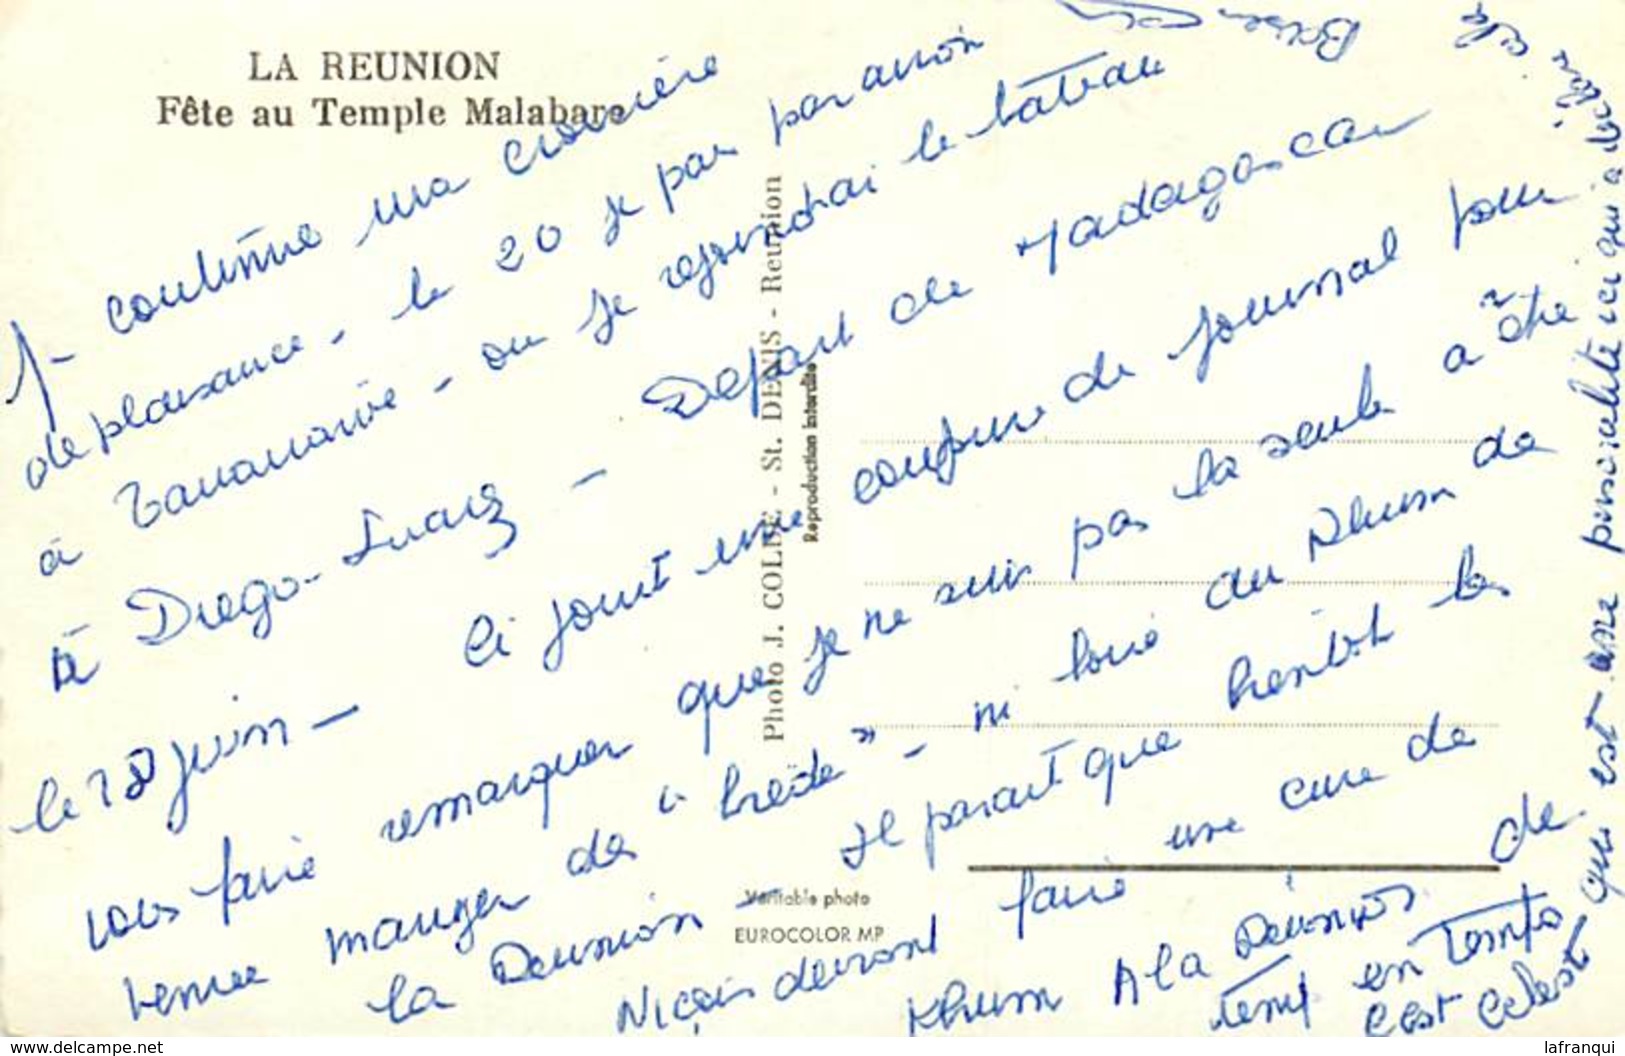 LA REUNION
Fête au Temple Malabare
Je continue ma croisière
de plaisance - le 20 je pars par avion
à Tananarive - ou je rejoindrai le bateau
à Diego-Suarez - Départ de Madagascar
le 28 juin - Ci joint une coupure de journal pour
vous faire remarquer que je ne suis pas la seule a être
venue manger de "brède" - ni boire du Rhum de
la Reunion - Il parait que bientôt les
Niçois devront faire une cure de
Rhum A la Réunion de
temps en Temps
c'est Celest
qui est une personalité ici qui a
Photo J. COLBE - St. DENIS - Reunion
Reproduction interdite
Véritable photo
EUROCOLOR MP
www.delcampe.net
lafranqui